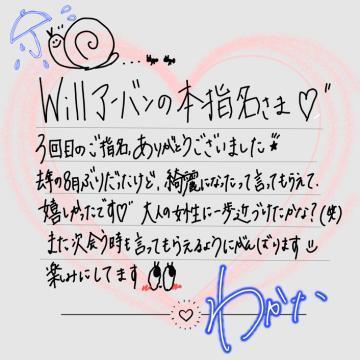 Willアーバンの本指名さま♡"
3回目のご指名、ありがとうございました
去年の8月ぶりだったけど、綺麗になったって言ってもらえて、
嬉しかったです♡ 大人の女性に一歩近づけたかな?(笑)
また次会う時も言ってもらえるようにがんばります
楽みにしてます
わかな